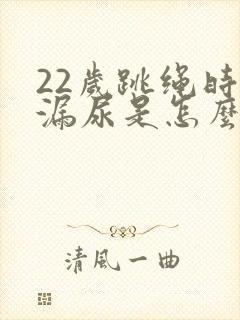 22歲跳绳時
漏尿是怎麼
清風一曲